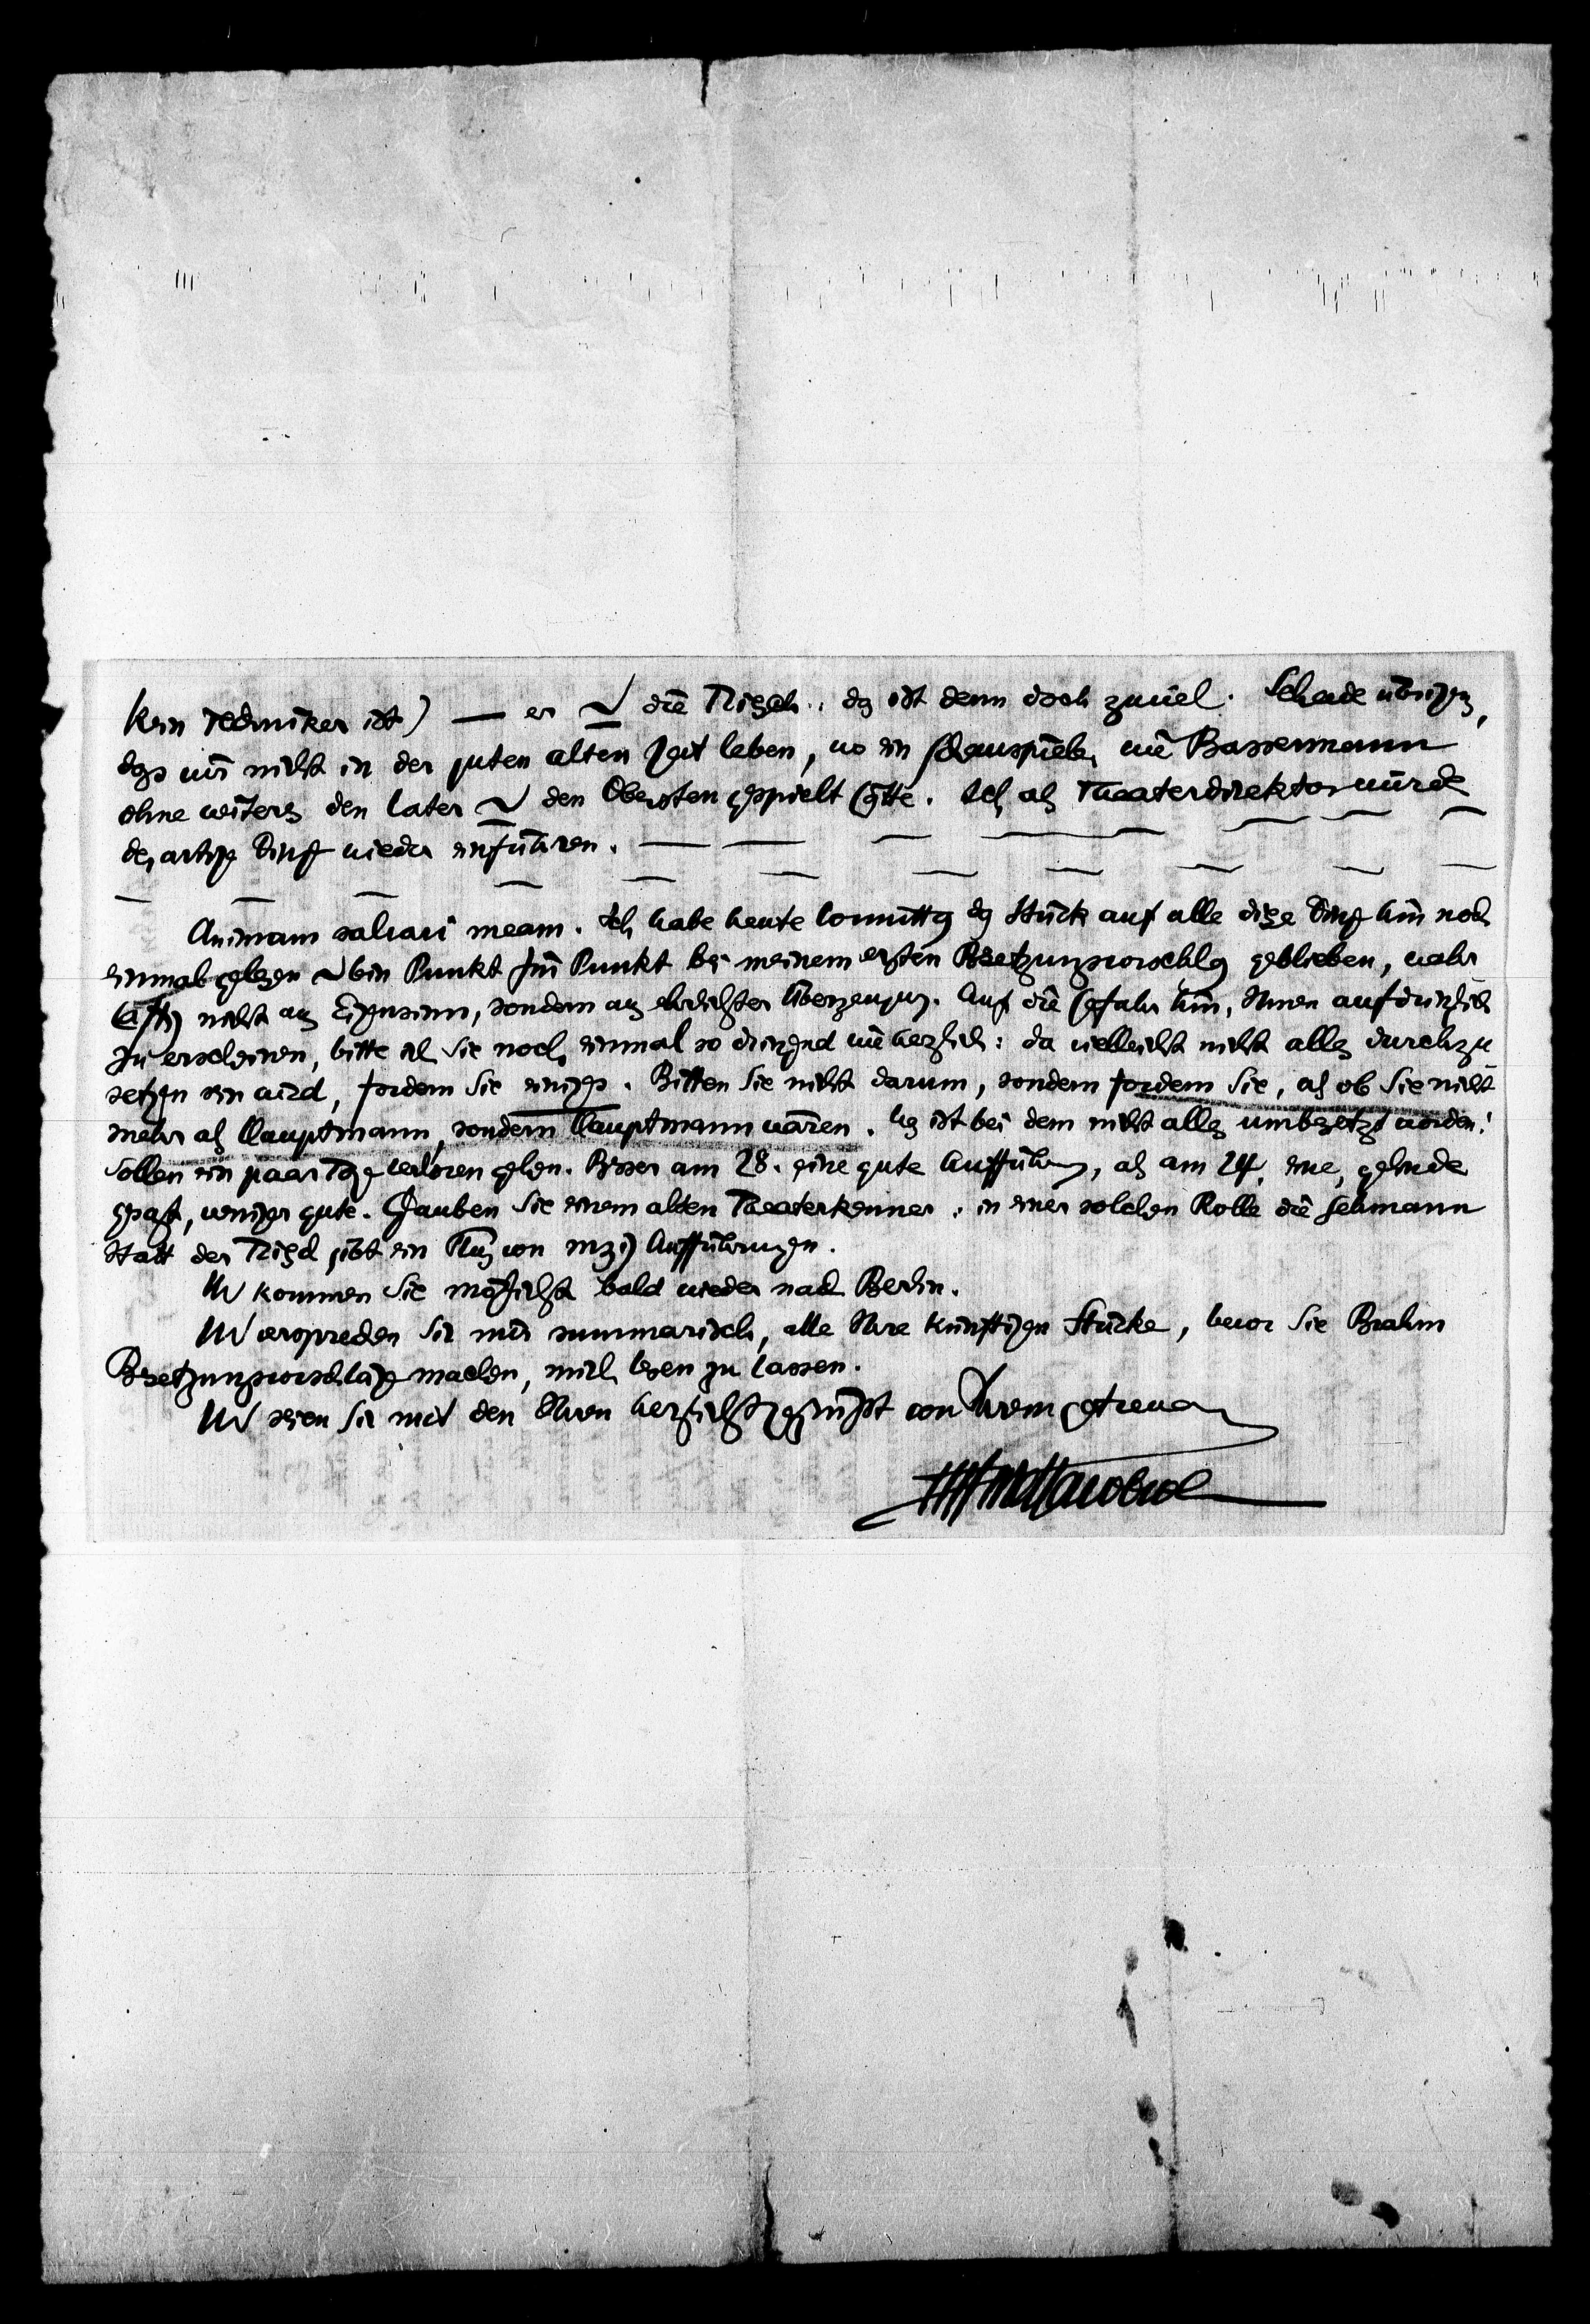 kein Techniker ist) — er u die Triesch: das ist denn doch zuviel. Schade übrigens,
dass wir nicht in der guten alten Zeit leben, wo ein Schauspieler wie Bassermann
ohne weiters den Vater u den Obersten gespielt hätte. Ich als Theaterdirektor würde
derartige Dinge wieder einführen. — — — — — — —
— — — — — — — — — — —
Animam salvavi meam. Ich habe heute Vormittag das Stück auf alle diese Dinge hin noch
einmal gelesen u bin Punkt für Punkt bei meinem ersten Besetzungsvorschlag geblieben, wahr
haftig nicht aus Eigensinn, sondern aus ehrlichster Überzeugung. Auf die Gefahr hin, Ihnen aufdringlich
zu erscheinen, bitte ich Sie noch einmal so dringend wie herzlich: da vielleicht nicht alles durchzu
setzen sein wird, fordern Sie einiges. Bitten Sie nicht darum, sondern fordern Sie, als ob Sie nicht
mehr als Hauptmann, sondern Hauptmann wären. Was ist bei dem nicht alles umbesetzt worden!
Sollen ein paar Tage verloren gehen. Besser am 28. eine gute Aufführung, als am 24. eine, gelinde
gesagt, weniger gute. Glauben Sie einem alten Theaterkenner: in einer solchen Rolle die Lehmann
statt der Triesch gibt ein Plus von Aufführungen.
Und kommen Sie möglichst bald wieder nach Berlin.
Und versprechen Sie mir summarisch, alle Ihre künftigen Stücke, bevor Sie Brahm
Besetzungsvorschläge machen, mich lesen zu lassen.
Und seien Sie mit den Ihren herzlichst gegrüßt von Ihrem getreuen